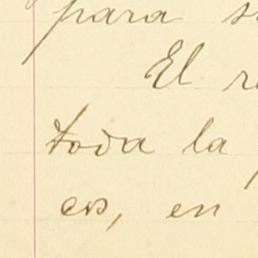 para s
El r
toda la
es, en